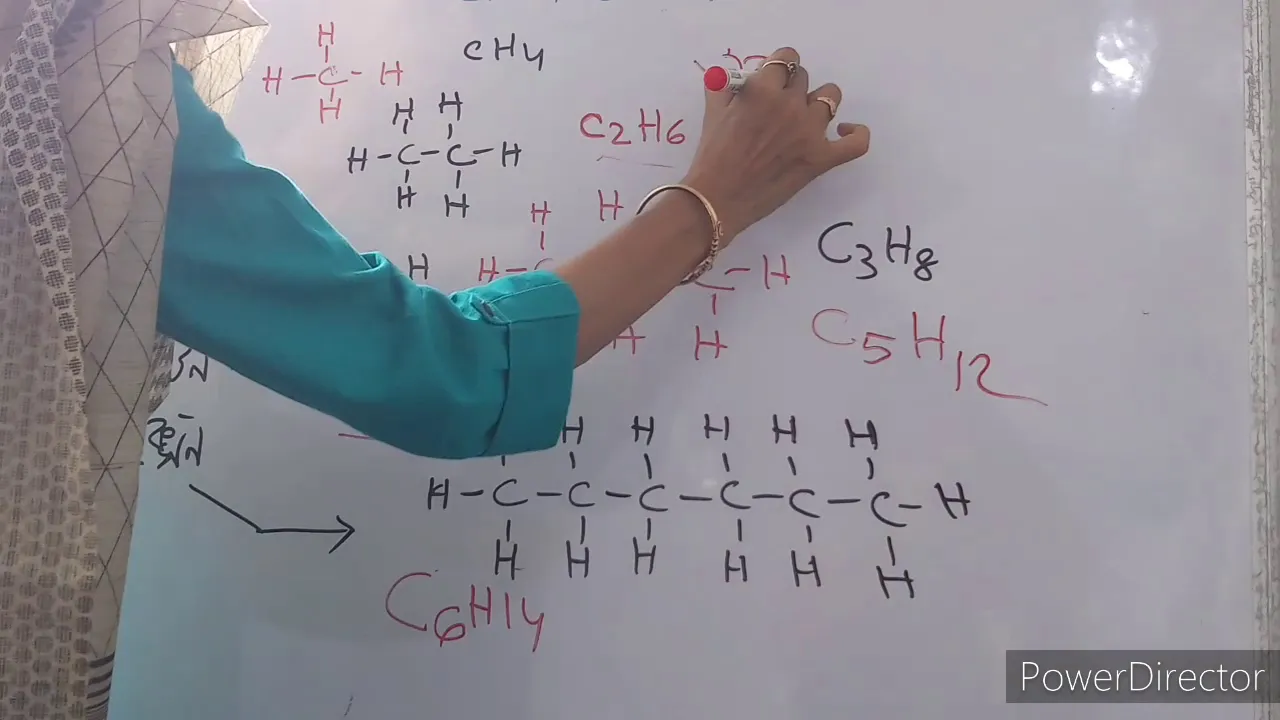 H
H – C – H CH4
H
H H
H – C – C – H C2H6
H H
H H
H H – – H C3H8
H H C5H12
H H H H H
H – C – C – C – C – C – C – H
H H H H H H
C6H14
PowerDirector